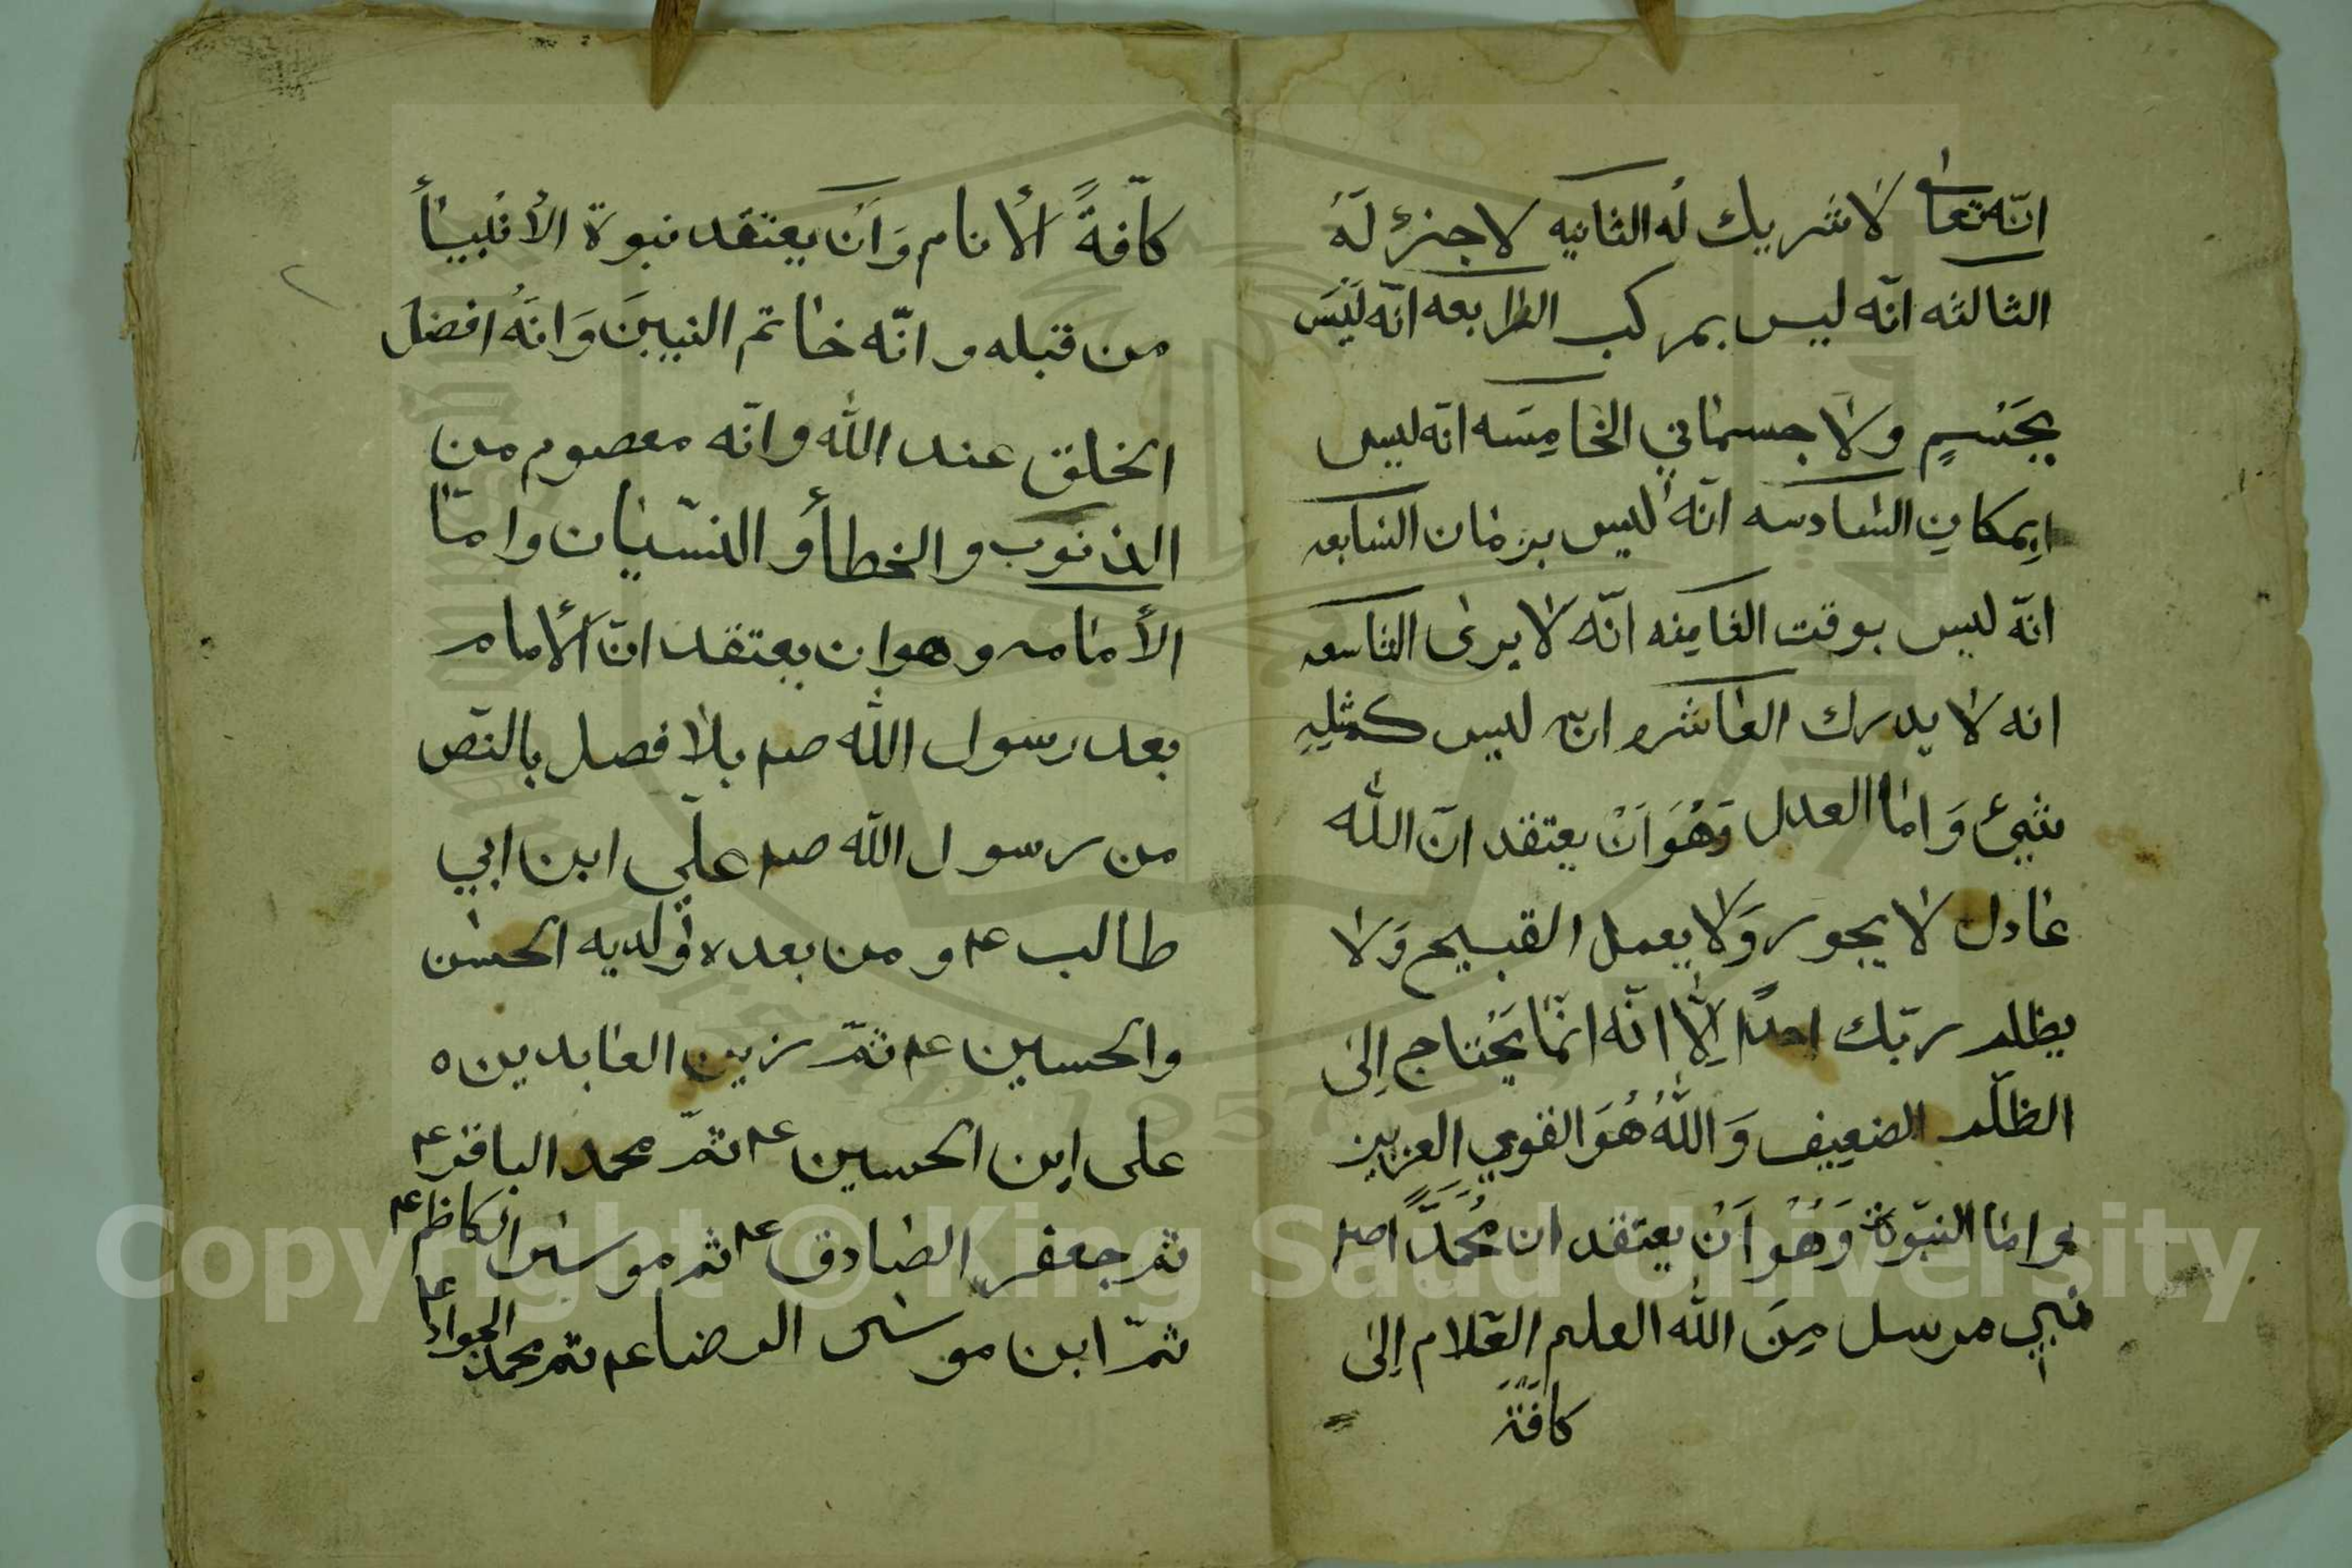 انّه تعالى لا شريك لهُ الثانيه لا جزء لَهُ
الثالثه انّه ليس بمركب الرابعه انّه لَيْسَ
بجَسْمٍ ولا جسماني الخامِسَه انّه ليس
بِمكانِ السادسه انّهُ ليس بزمان السابعه
انّه ليس بوقت الثامِنه انّه لا يرى التاسعه
انه لا يدرك العاشره انه ليس كمثلِهِ
شيئ وَ امّا العدل وَهُوَ اَنْ يعتقد انّ الله
عادل لا يجور وَلا يعمل القبيح وَلا
يظلم ربّك احداً لِلاّ انّه انّما يَحْتاج اِلى
الظلّم الضعيف وَ اللهُ هُوَ القوي العزيز
و امّا النبّوة وَهُوَ اَنْ يعتقد ان مُحَمَّداً صلم
نبي مرسل مِنَ الله العلم العّلام اِلى
كافّة
كافّةً الأنام وَ اَنْ يعتقد نبوة الأنْبيأ
من قبله و انّه خاتم النبيينَ وَ انّهُ افضل
الخلق عند الله و انّه معصوم من
الذنوب و الخطأ و النسّيان و امّا
الأمامه و هو ان يعتقد انّ الأمام
بعد رسول الله صلم بلا فصل بالنّص
من رسول الله صلم علّي ابن ابي
طالب عم و من بعده وَلديه الحسن
والحسين عم ثمّ زين العابدين ه
على اِبن الحسين عم ثمّ محمد الباقر عم
ثم جعفر الصّادق عم ثم موسى الكاظم عم
ثمّ ابن موسى الرضا عم ثم محمد الجواد عم
Copyright © King Saud University
1957